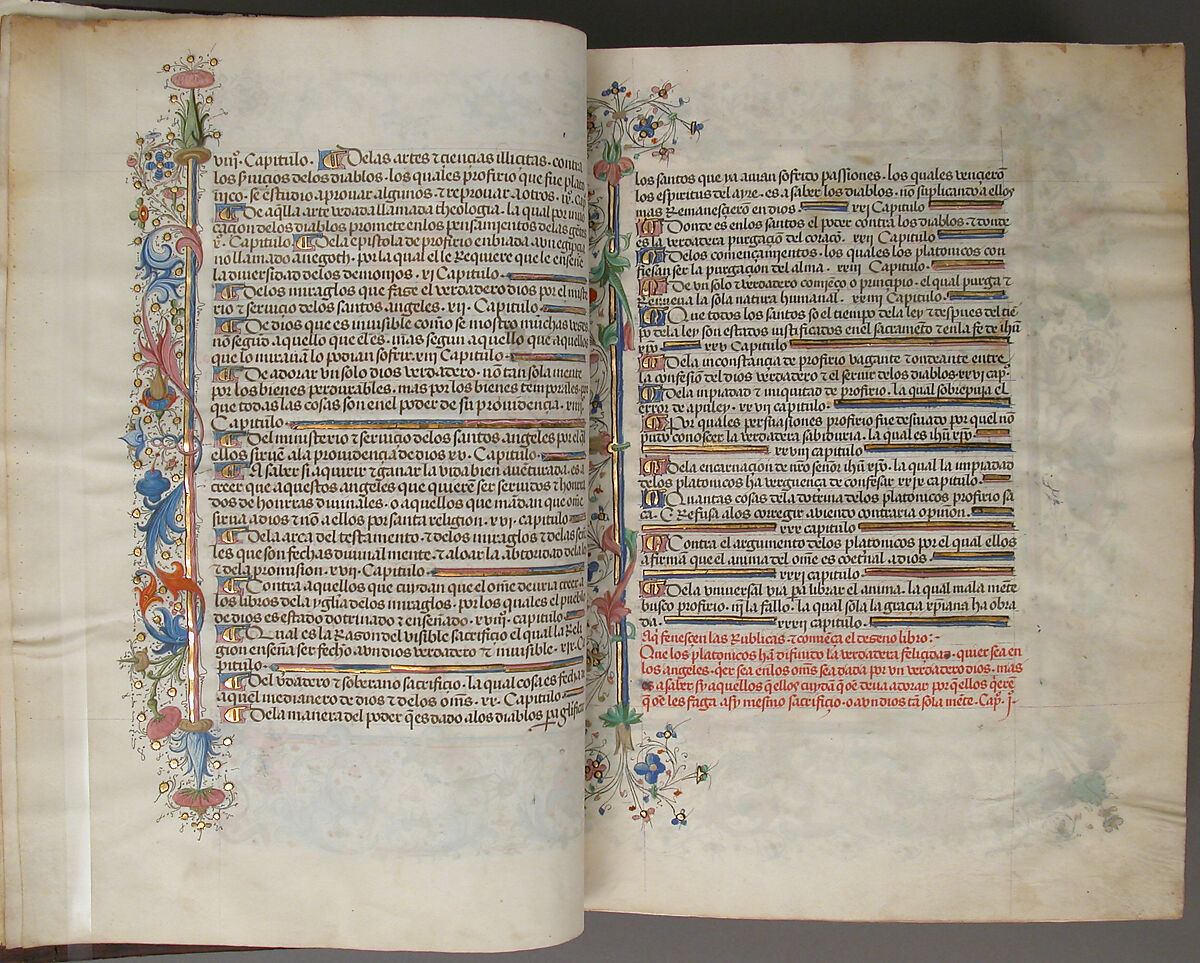 viijº. Capitulo. Delas artes ⁊ çiençias illiçitas. contra
los seruiçios delos diablos. los quales profirio que fue plato
nico. se estudio a prouar algunos. ⁊ reprouar a otros. ix. Cap
De aq̃lla arte vedada llamada theologia. la qual por inuo
caçion delos diablos promete enlos pensamientos delas gentes
xº. Capitulo. Dela epistola de profirio enbiada a vn egipçia
no llamado anegoth. por la qual el le Requiere que le enseñe
la diuersidad delos demonios. xj Capitulo.
Delos miraglos que faze el verdadero dios por el miste
rio ⁊ seruiçio delos santos angeles. xij. Capitulo.
De dios que es inuisible como se mostro muchas vezes
nõ segun aquello que el es. mas segun aquello que aquellos
que lo mirauã lo podian sofrir. xiij Capitulo.
De adorar vn solo dios verdadero. nõ tan sola mente
por los bienes perdurables. mas por los bienes temporales. por
que todas las cosas son enel poder de su prouidençia. xiiijº
Capitulo.
Del ministerio ⁊ seruiçio delos santos angeles por el q̃l
ellos siruẽ ala prouidençia de dios xv. Capitulo.
A saber si aquirir ⁊ ganar la vida bien auenturada. es a
creer que aquestos angeles que quierẽ ser seruidos ⁊ honrra
dos de honrras diuinales. o aquellos que mãdan que ome
sirua a dios ⁊ nõ a ellos por santa religion. xvj. capitulo
Dela arca del testamento. ⁊ delos miraglos ⁊ delas seña
les que son fechas diuinalmente ⁊ a loar la abtoridad dela ley
⁊ dela promision. xvij. Capitulo.
Contra aquellos que cuydan que el ome deuria creer a
los libros dela yglia delos miraglos. por los quales el pueblo
de dios es estado dotrinado ⁊ enseñado. xviij. capitulo
Qual es la Razon del visible sacrifiçio el qual la Reli
gion enseña ser fecho a vn dios verdadero ⁊ inuisible. xix. Ca
pitulo.
Del v̉dadero ⁊ soberano sacrifiçio. la qual cosa es fecha en
aquel medianero de dios ⁊ delos oms̃. xx. Capitulo.
Dela manera del poder q̃ es dado alos diablos pa glifi
los santos que ya auian sofrido passiones. los quales vençeron
los espiritus del ayre. es a saber los diablos. nõ suplicando a ellos
mas Remanesçierõ en dios. xxj Capitulo
Donte es enlos santos el poder contra los diablos. ⁊ donte
es la verdadera purgaçiõ del coraçõ. xxij Capitulo
Delos começamientos. los quales los platonicos con
fiesan ser la purgaçion del alma. xxiij Capitulo.
De vn solo ⁊ verdadero comieço o prinçipio. el qual purga ⁊
Renueua la sola natura humanal. xxiiij Capitulo.
Que todos los santos so el tiempo dela ley ⁊ despues del tiẽ
po dela ley son estados iustificados enel sacramẽto ⁊ enla fe de ih̃u
xp̃o. xxv Capitulo
Dela inconstançia de profirio vagante ⁊ ondeante entre
la confesiõ del dios verdadero ⁊ el seruir delos diablos. xxvj cap̃.
Dela inpiadad ⁊ iniquitad de profirio. la qual sobrepuja el
error de apuley. xxvij capitulo.
Por quales persuasiones profirio fue desuiado por quel nõ
pudo conosçer la verdadera sabiduria. la qual es ih̃u xp̃o.
xxviij capitulo
Dela encarnaçion de nr̃o señor ih̃u xp̃o. la qual la impiadad
delos platonicos ha verguença de confesar. xxix capitulo.
Quantas cosas dela dotrina delos platonicos profirio sa
ca. ⁊ Refusa alos corregir abiendo contraria opiñon.
xxx capitulo
Contra el argumento delos platonicos por el qual ellos
afirma que el anima del ome es coeternal a dios.
xxxj capitulo
Dela vniuersal via pa librar el anima. la qual mala mẽte
busco profirio. nj la fallo. la qual sola la graçia xp̃iana ha obra
da. xxxij capitulo.
Aq̃ feneçen las Rublicas. ⁊ comieça el dezeno libro:-
Que los platonicos hã difinido la verdadera feliçidad. quier sea en
los angeles. q̃er sea enlos oms̃ sea dada por vn verdadero dios. mas
es a saber sy aquellos q̃ ellos cuydan q̃ õe deua adorar por q̃ ellos q̃erẽ
q̃ õe les faga. asy mesmo sacrifiçio. o a vn dios tã sola mẽte. Cap̃. j.